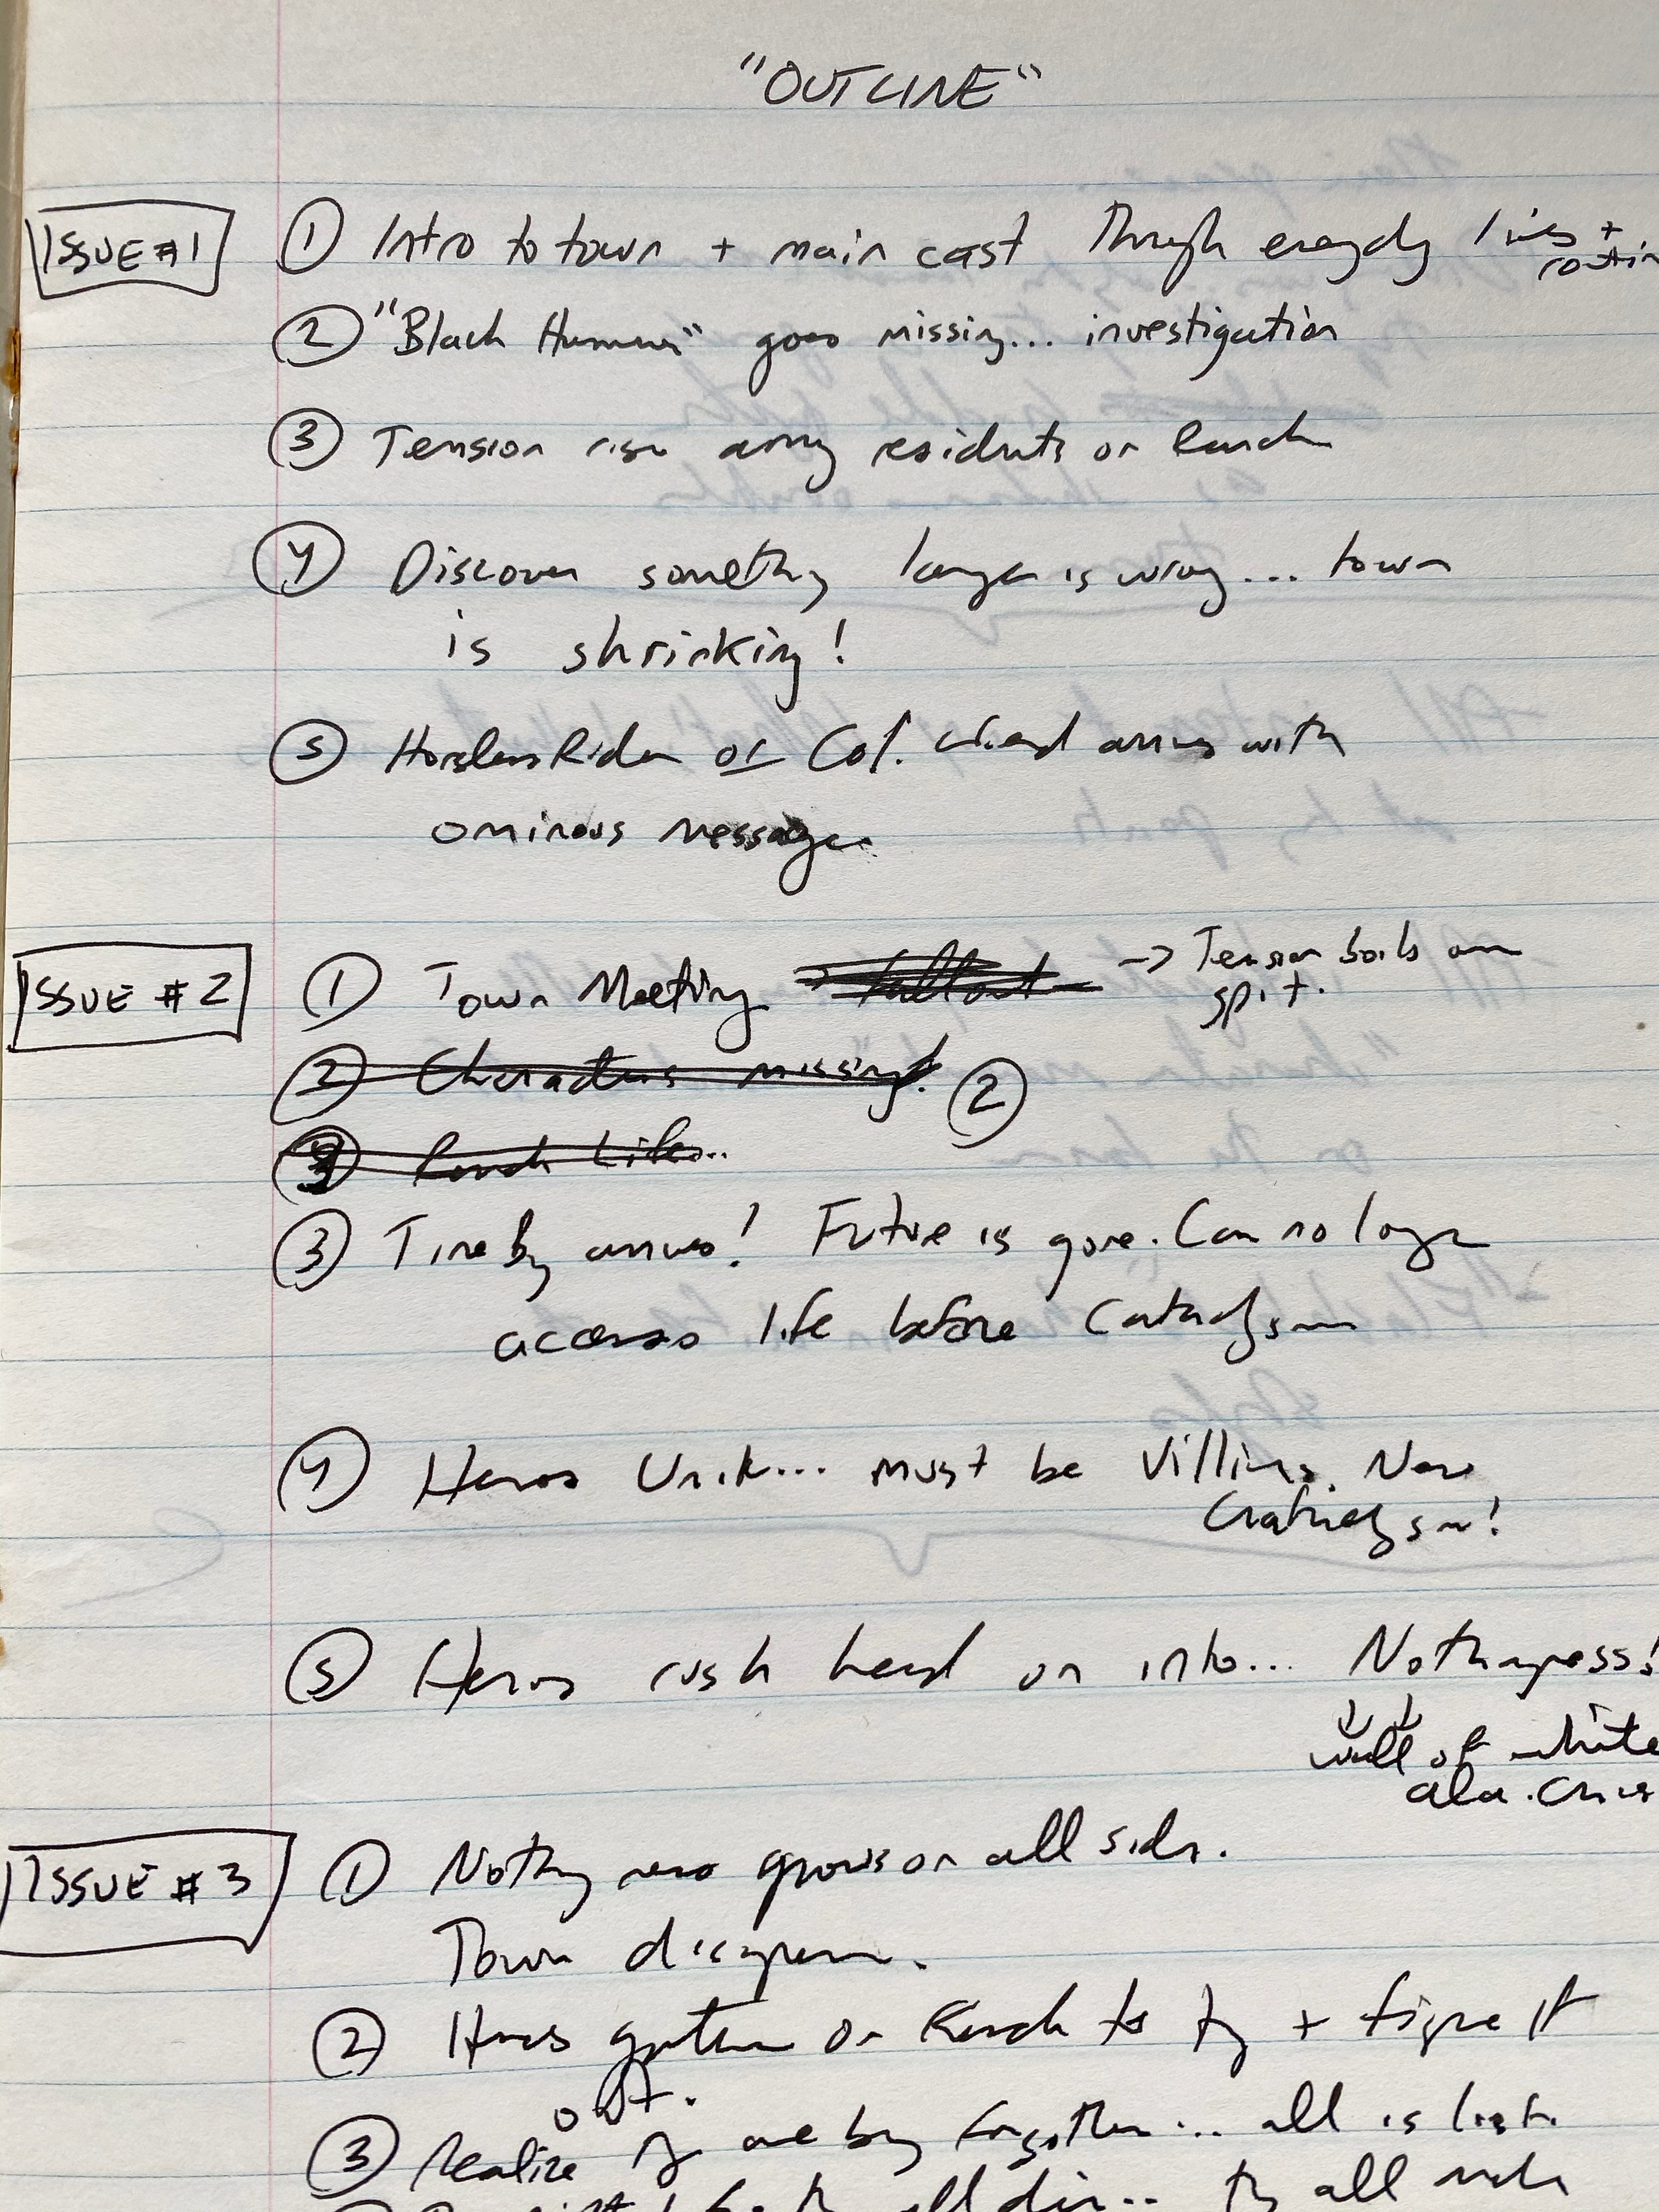 "OUTLINE"
ISSUE #1
① Intro to town + main cast through everyday lives +
② "Black Hammer" goes missing... investigation
③ Tension rise among residents on Ranch
④ Discover something larger is wrong... town
is shrinking!
⑤ Horseless Rider or Col. Weird arrives with
ominous message
ISSUE #2
① Town Meeting → Tension boils over
split.
② Characters missing! ②
③
③ arrives! Future is gone. Can no longer
access life before Cataclysm
④ Heros Unite... must be Villians. New
Cataclysm!
⑤ Heros rush head on into... Nothingness!
wall of white
ala
ISSUE #3
① Nothingness grows on all sides.
Town disappears.
② Heros gather on Ranch to try + figure it
out.
③ Realize they are being forgotten... all is lost.